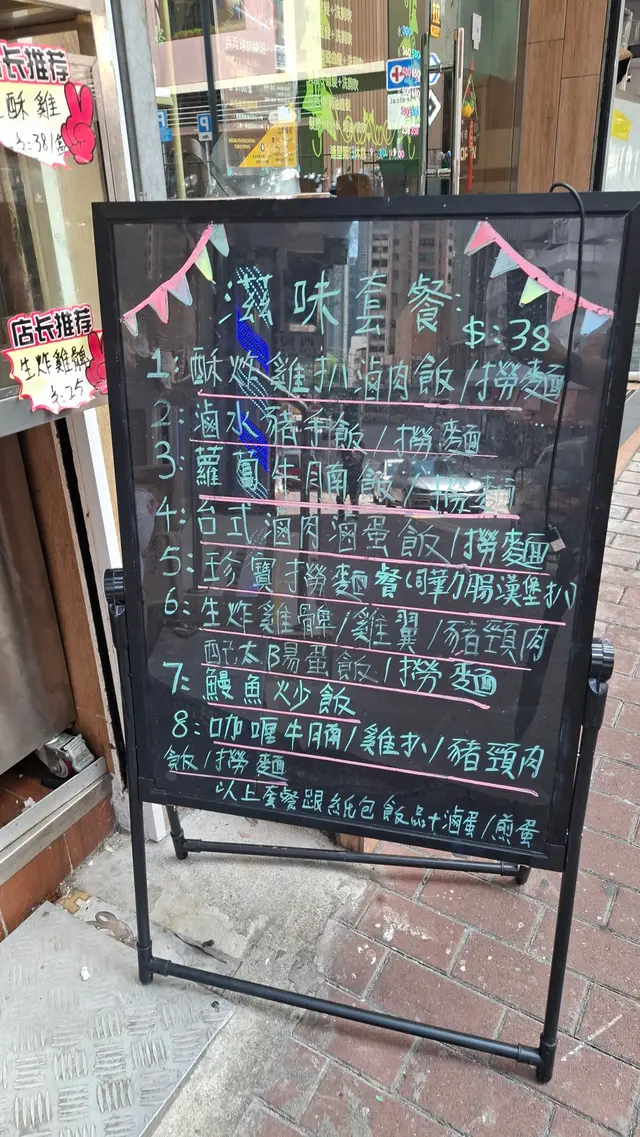 店长推荐
酥雞
$:38/盒
店长推荐
生炸雞髀
$:25
Medical
滋味套餐: $:38
1: 酥炸雞扒滷肉飯/撈麵
2: 滷水豬手飯/撈麵
3: 蘿蔔牛腩飯/撈麵
4: 台式滷肉滷蛋飯/撈麵
5: 珍寶撈麵餐
6: 生炸雞髀/雞翼/豬頸肉
配太陽蛋飯/撈麵
7: 鰻魚炒飯
8: 咖喱牛腩/雞扒/豬頸肉
飯/撈麵
以上套餐跟紙包飲品+滷蛋/煎蛋